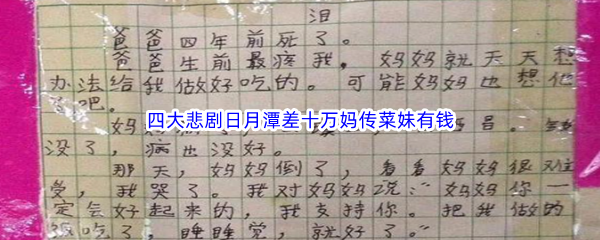 泪
爸爸四年前死了。
爸爸生前最疼我，妈妈就天天想
办法给我做好吃的。可能妈妈也想他
了吧。
四大悲剧日月潭差十万妈传菜妹有钱
妈
没了，病也没好。
那天，妈妈倒了，看看妈妈很难
受，我哭了。我对妈妈说："妈妈你一
定会好起来的，我支持你。把我做的
饭吃了，睡睡觉，就好了。"